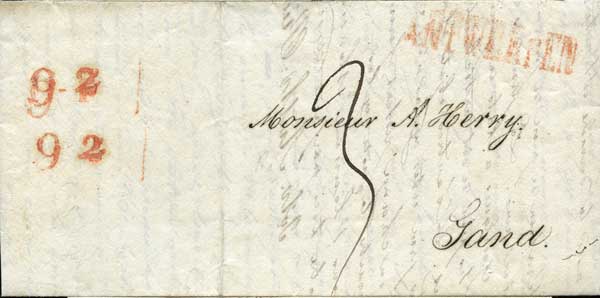 ANTWERPEN
9 2
9 2
3
Monsieur A. Herry.
Gand.